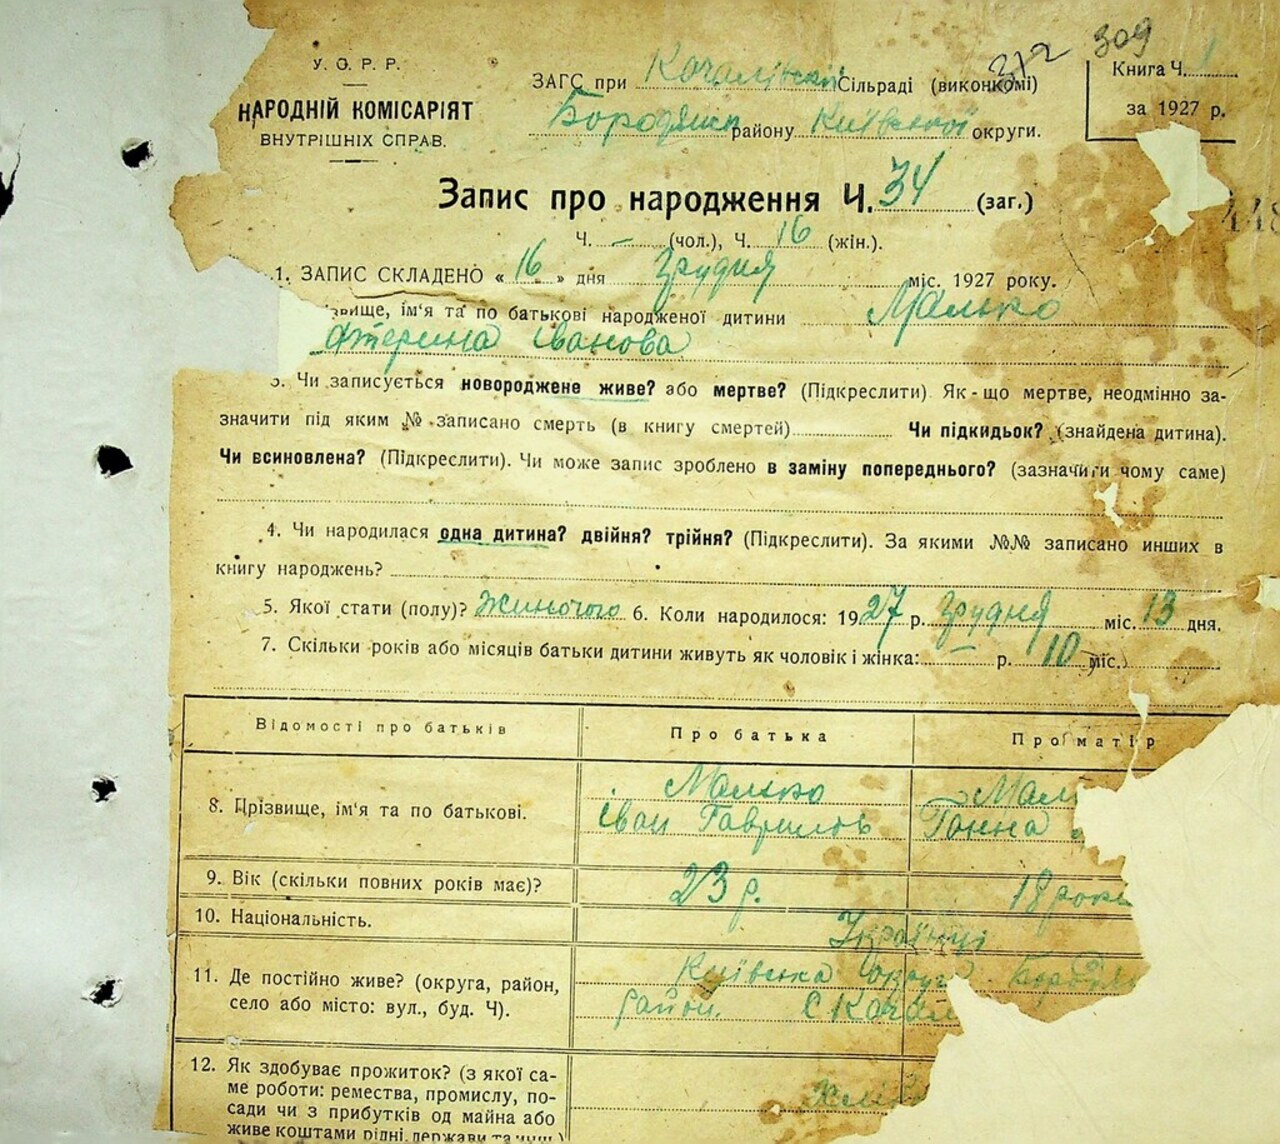 312 309
У. С. Р. Р.
НАРОДНІЙ КОМІСАРІЯТ
ВНУТРІШНІХ СПРАВ.
ЗАГС при Качалівській Сільраді (виконкомі)
Бородянськ району Київської округи.
Книга Ч. 1
за 1927 р.
448
Запис про народження Ч. 34 (заг.)
Ч. – (чол.), Ч. 16 (жін.).
1. ЗАПИС СКЛАДЕНО « 16 » дня Грудня міс. 1927 року.
звище, ім'я та по батькові народженої дитини Малько
атерина Іванова
3. Чи записується новороджене живе? або мертве? (Підкреслити) Як-що мертве, неодмінно за-
значити під яким № записано смерть (в книгу смертей) Чи підкидьок? (знайдена дитина).
Чи всиновлена? (Підкреслити). Чи може запис зроблено в заміну попереднього? (зазначити чому саме)
4. Чи народилася одна дитина? двійня? трійня? (Підкреслити). За якими №№ записано инших в
книгу народжень?
5. Якої стати (полу)? Жиночого 6. Коли народилося: 1927 р. Грудня міс. 13 дня.
7. Скільки років або місяців батьки дитини живуть як чоловік і жінка: – р. 10 міс.
Відомості про батьків Про батька Про матір
8. Прізвище, ім'я та по батькові. Малько Мал
Іван Гаврилов Ганна
9. Вік (скільки повних років має)? 23 р. 18 роки
10. Національність. Українці
11. Де постійно живе? (округа, район, Київська округ Бородян
село або місто: вул., буд. Ч). район. С Качал
12. Як здобуває прожиток? (з якої са-
ме роботи: ремества, промислу, по-
сади чи з прибутків од майна або
живе коштами рідні, держави та инш.)